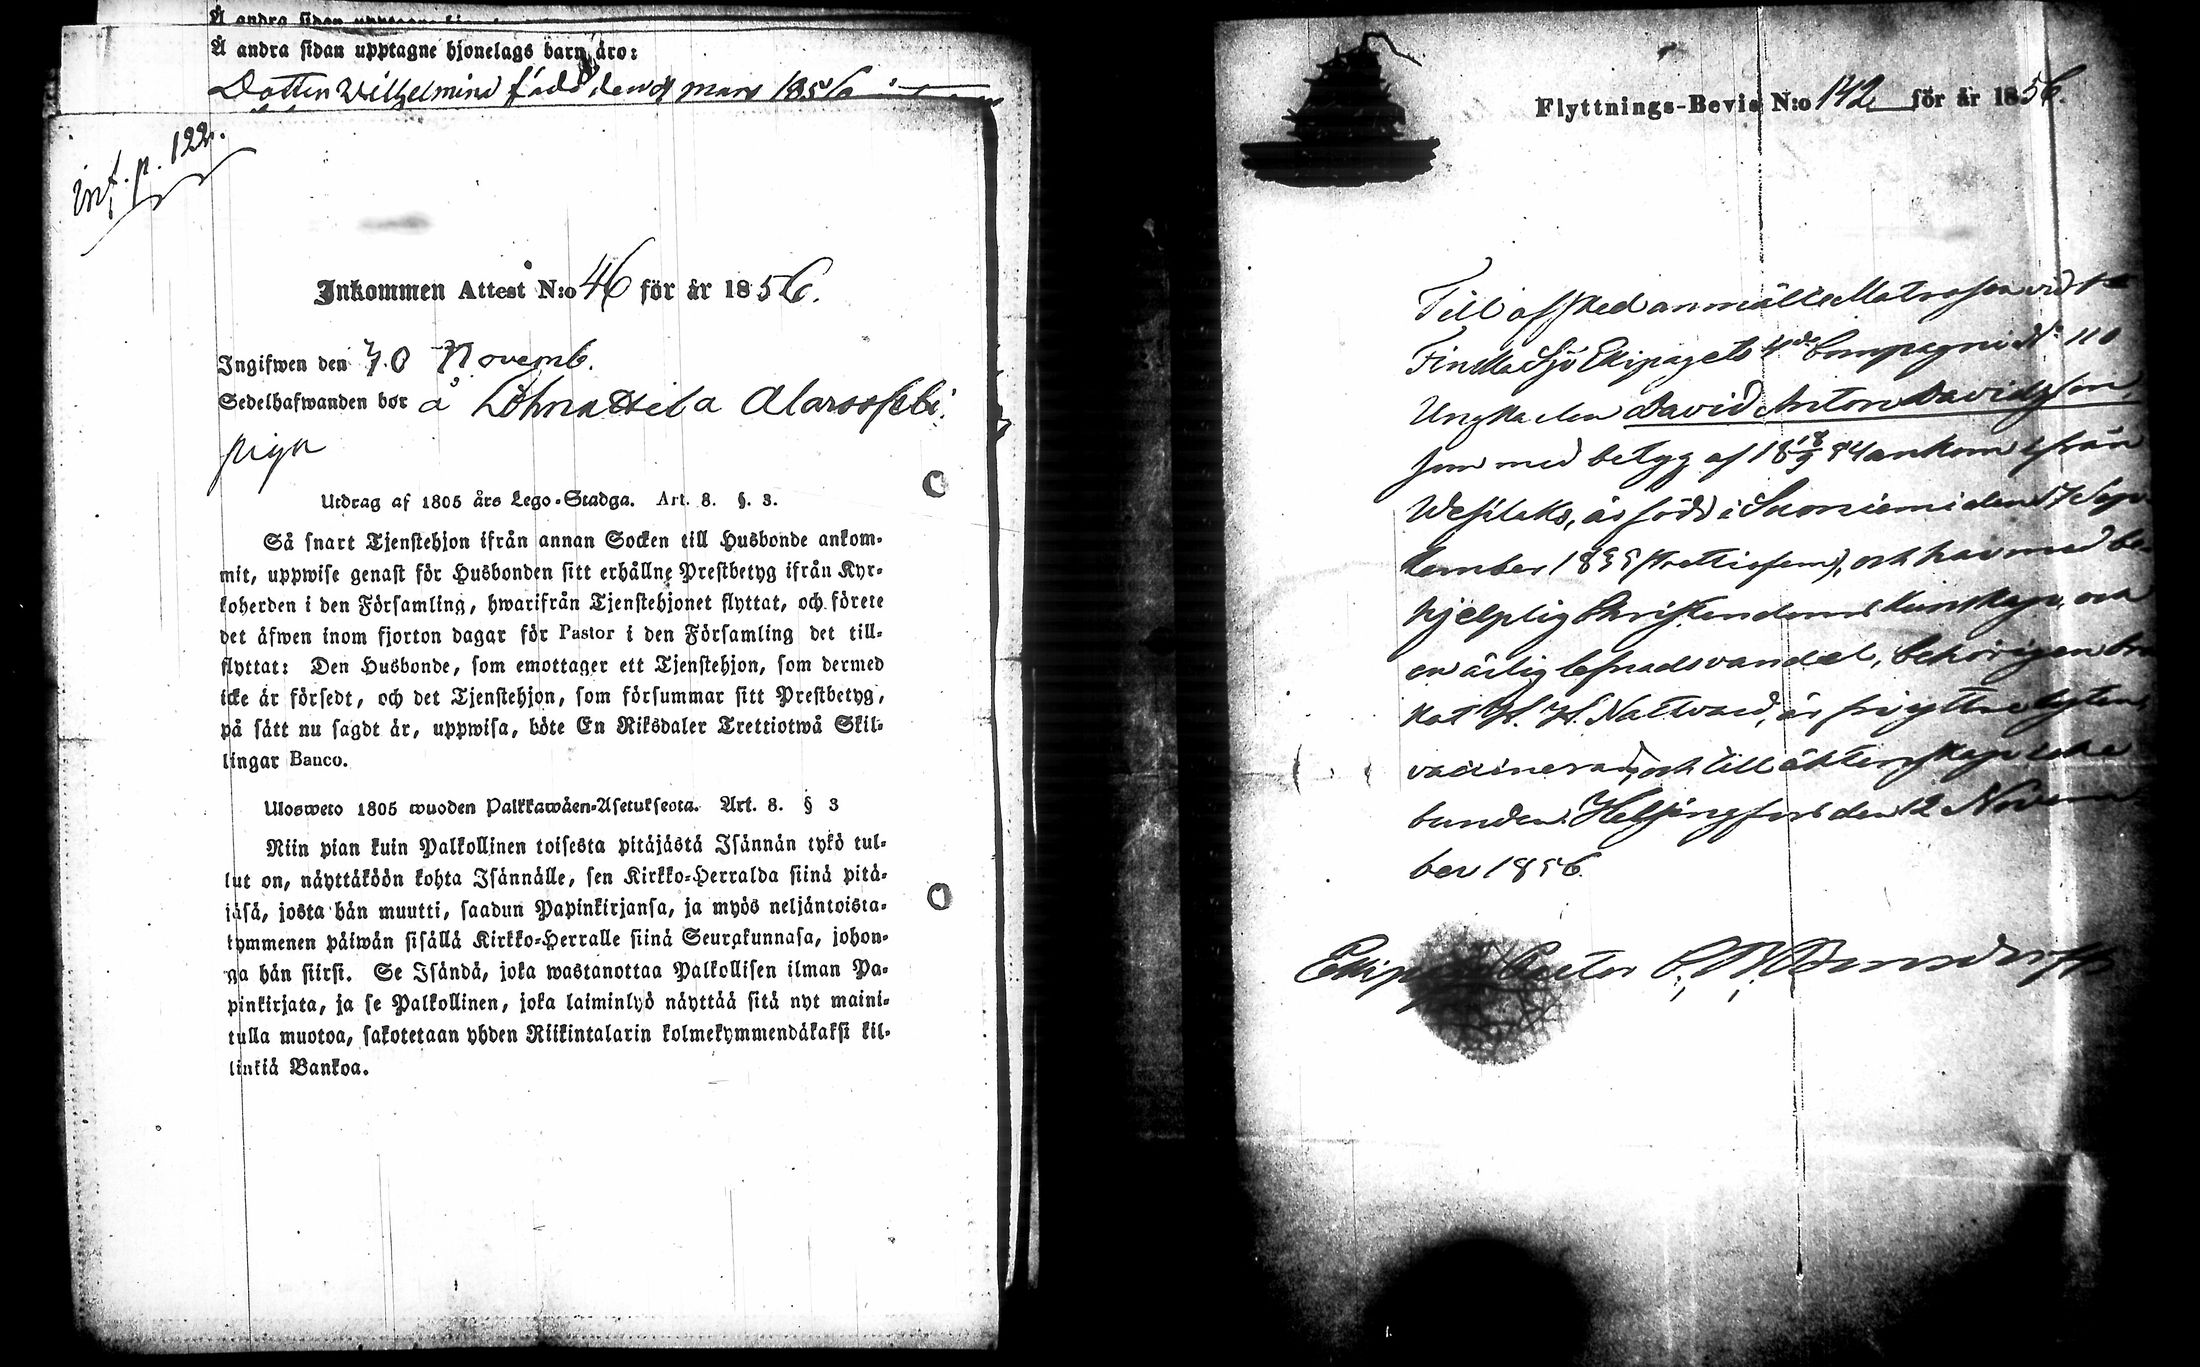 Å andra sidan
Å andra sidan upptagne hjonelags barn äro:
Dotter Wilhelmina född den 9 mars 1856
inf. p. 122.
Inkommen Attest N:o 46 för år 1856.
Ingifwen den 30 Novemb.
Sedelhafwanden bor å
piga
Utdrag af 1805 års Lego-Stadga. Art. 8. §. 3.
Så snart Tjenstehjon ifrån annan Socken till Husbonde ankom-
mit, uppwise genast för Husbonden sitt erhållne Prestbetyg ifrån Kyr-
koherden i den Församling, hwarifrån Tjenstehjonet flyttat, och förete
det äfwen inom fjorton dagar för Pastor i den Församling det till-
flyttat: Den Husbonde, som emottager ett Tjenstehjon, som dermed
icke är försedt, och det Tjenstehjon, som försummar sitt Prestbetyg,
på sätt nu sagdt är, uppwisa, böte En Riksdaler Trettiotwå Skil-
lingar Banco.
Ulosweto 1805 wuoden Palkkawäen-Asetuksesta. Art. 8. § 3
Niin pian kuin Palkollinen toisesta pitäjästä Isännän tykö tul-
lut on, näyttäköön kohta Isännälle, sen Kirkko-Herralda siinä pitä-
jäsä, josta hän muutti, saadun Papinkirjansa, ja myös neljäntoista-
kymmenen päiwän sisällä Kirkko-Herralle siinä Seurakunnasa, johon-
ga hän siirsi. Se Isändä, joka wastanottaa Palkollisen ilman Pa-
pinkirjata, ja se Palkollinen, joka laiminlyö näyttää sitä nyt maini-
tulla muotoa, sakotetaan yhden Riikintalarin kolmekymmendäkaksi kil-
linkiä Bankoa.
Flyttnings-Bevis N:o 142 för år 1856.
Till afsked anmälte Matrosen vid 1a
Finska Sjö Ekipagets 4de Compagni No 110
Ungkarlen David Anton Davidsson,
som med betyg af 18 18/9 54 ankom ifrån
Wesilaks, är född i Suoniemi den 7 Sep-
tember 1835 (trettiofem), och har med be-
hjelplig Christendoms kunskap, och
en ärlig lefnadsvandel, behörigen bru
kat H. H. Nattvard, är fri yttre lyten,
vaccinerad, och till äktenskap icke
bunden. Helsingfors den 12 Novem
ber 1856.
Pastor